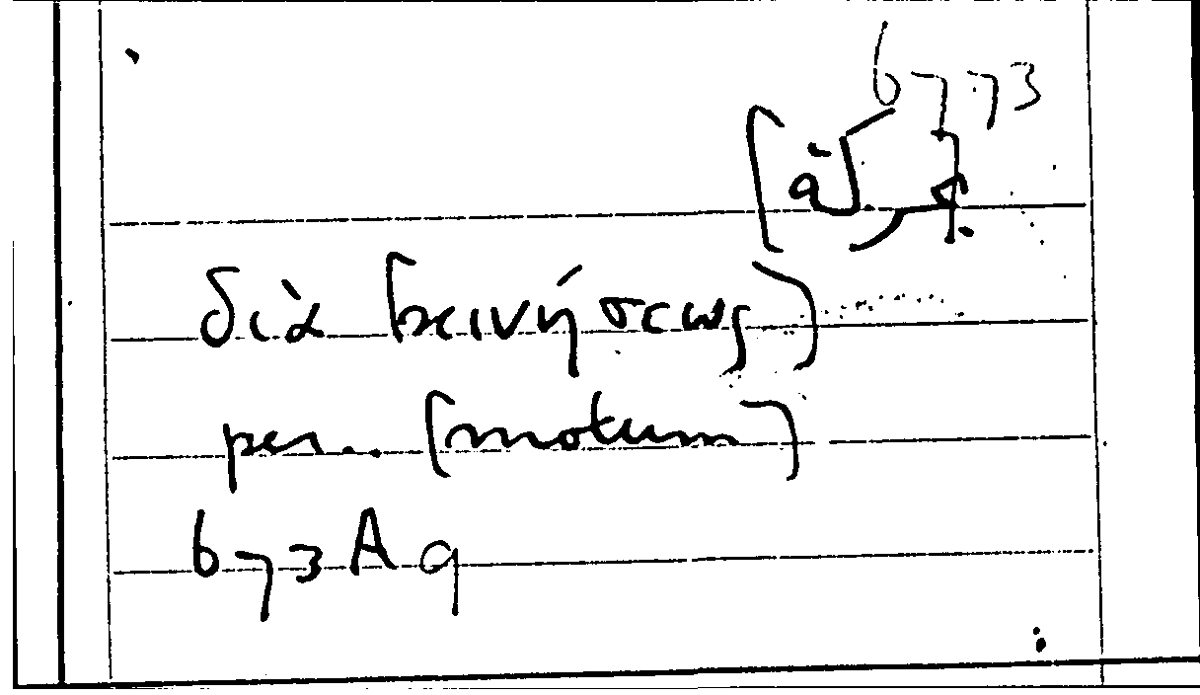 6773
διὰ [κινήσεως)
per. [motum]
673 A 9